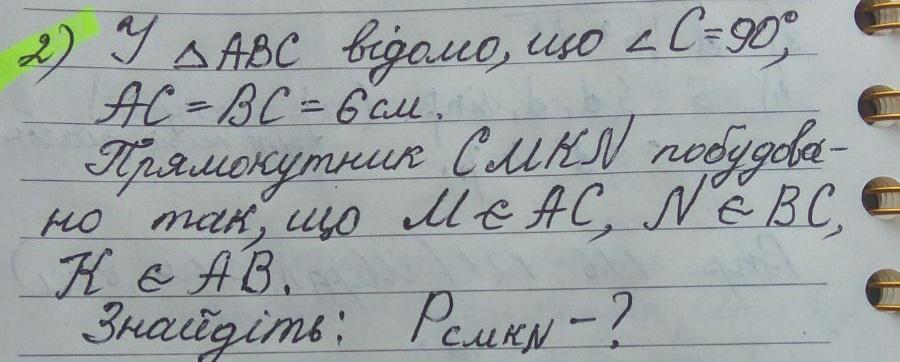 2) У △ABC відомо, що ∠C=90°,
AC=BC=6см.
Прямокутник CMKN побудова-
но так, що M∈AC, N∈BC,
K∈AB.
Знайдіть: P CMKN -?